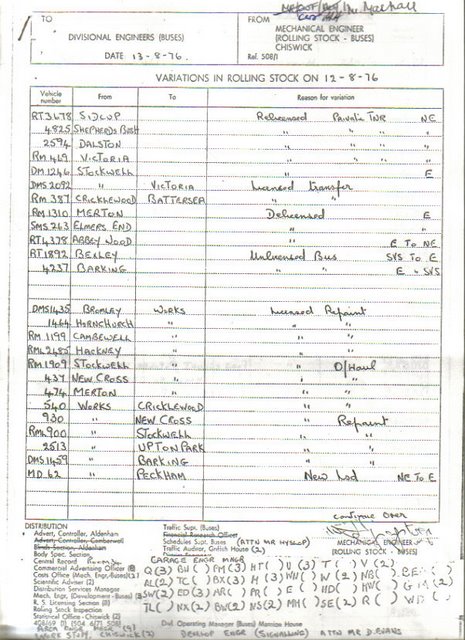 TO
DIVISIONAL ENGINEERS (BUSES)
DATE 13-8-76
FROM
MECHANICAL ENGINEER
(ROLLING STOCK - BUSES)
CHISWICK
Ref. 508/1
VARIATIONS IN ROLLING STOCK ON 12-8-76
Vehicle number From To Reason for variation
RT3678 SIDCUP Relicensed Private TNR NE
4825 SHEPHERDS BUSH " " "
2594 DALSTON " " "
RM 469 VICTORIA " " "
DM 1246 STOCKWELL " E
DMS 2092 " VICTORIA Licensed transfer
RM 387 CRICKLEWOOD BATTERSEA " "
RM 1310 MERTON Delicensed E
SMS 263 ELMERS END " "
RT4378 ABBEY WOOD " E TO NE
RT1892 BEXLEY Unlicensed Bus SVS TO E
4237 BARKING " " E " SVS
DMS1435 BROMLEY WORKS Licensed Repaint
1464 HORNCHURCH " " "
RM 1199 CAMBERWELL " " "
RML 2485 HACKNEY " " "
RM 1909 STOCKWELL " " O/Haul
437 NEW CROSS " " "
474 MERTON " " "
540 WORKS CRICKLEWOOD " "
930 " NEW CROSS " Repaint
RML 900 " STOCKWELL " "
2513 " UPTON PARK " "
DMS 1459 " BARKING " "
MD 62 " PECKHAM New Lsd NE TO E
continue over
MECHANICAL ENGINEER
(ROLLING STOCK - BUSES)
DISTRIBUTION
Advert. Controller, Aldenham
Advert. Controller, Camberwell
Body Spec. Section
Central Record
Commercial Advertising Officer
Costs Office (Mech. Engr.-Buses)
Scientific Adviser (2)
Distribution Services Manager
Mech. Engr. (Development - Buses)
R. S. Licensing Section
Rolling Stock Inspection
Statistical Office - Chiswick (2)
Traffic Supt. (Buses)
Financial Research Officer
Schedules Supt. Buses (ATTN MR HYSLOP)
Traffic Auditor, Griffith House (2)
GARAGE ENGR MNGR
Dvl. Operating Manager (Buses) Manisco House
WORKS SUPT CHISWICK (2)
DEVLOP ENGR (SIGNALLING) ATTN MR D. EVANS